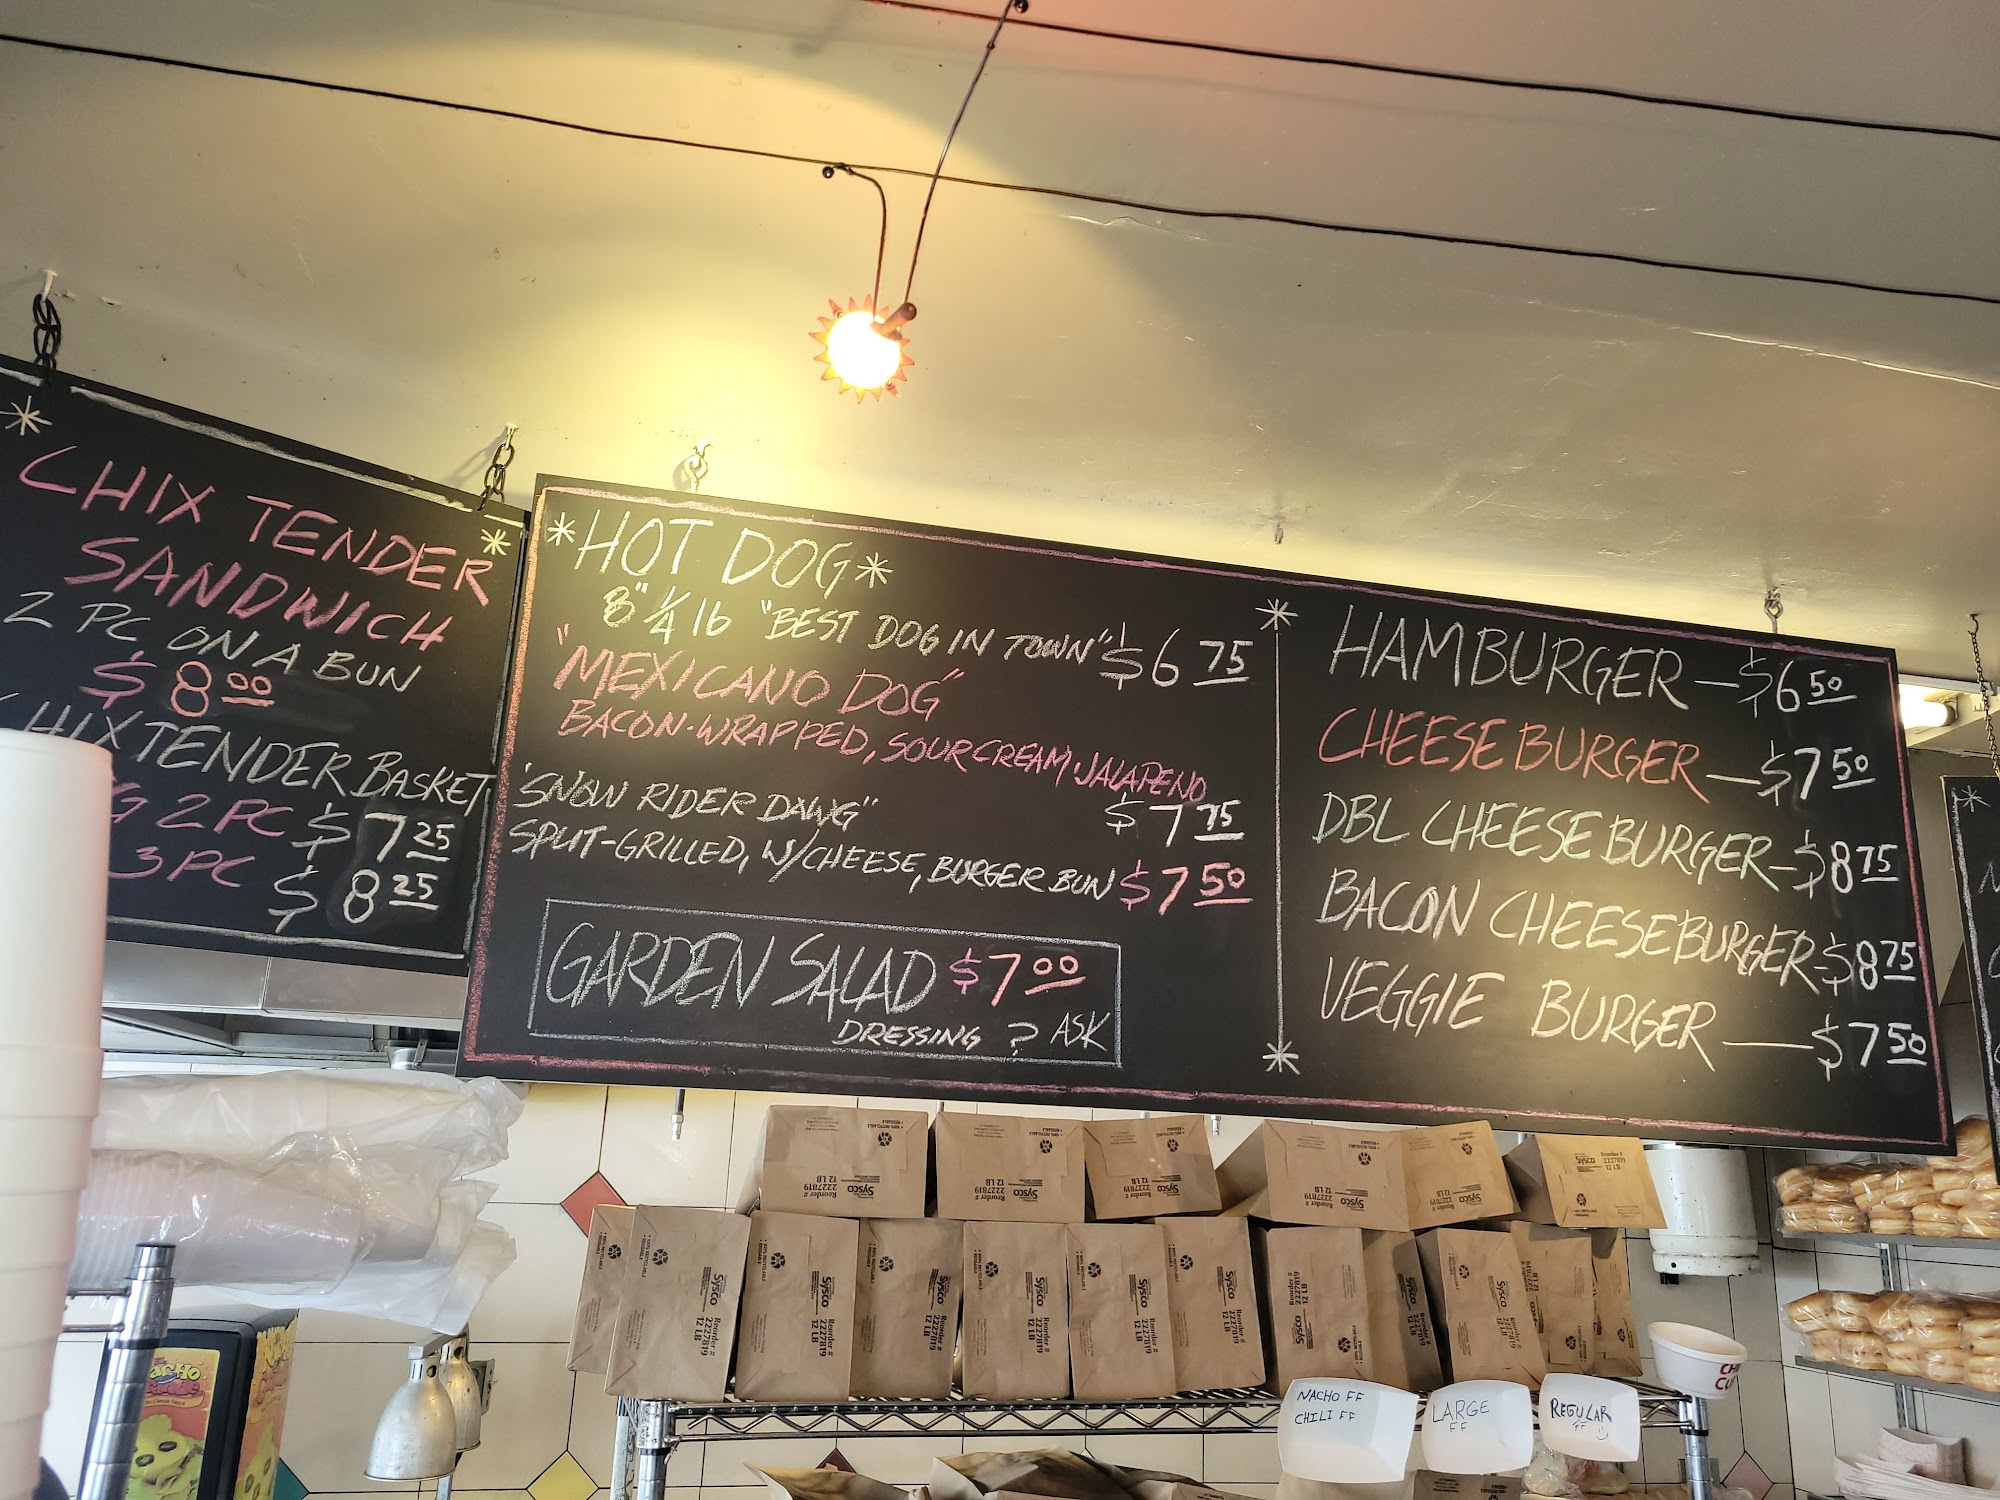 * CHIX TENDER *
SANDWICH
2 PC ON A BUN
$8.00
CHIX TENDER BASKET
2 PC $7.25
3 PC $8.25
*HOT DOG*
8" 1/4 lb "BEST DOG IN TOWN" $6.75
"MEXICANO DOG"
BACON-WRAPPED, SOUR CREAM·JALAPENO
$7.75
"SNOW RIDER DAWG"
SPLIT-GRILLED, W/CHEESE, BURGER BUN $7.50
GARDEN SALAD $7.00
DRESSING ? ASK
HAMBURGER — $6.50
CHEESEBURGER — $7.50
DBL CHEESEBURGER - $8.75
BACON CHEESEBURGER - $8.75
VEGGIE BURGER — $7.50
Sysco
Reorder #
2227819
12 LB
100% RECYCLABLE
NACHO FF
CHILI FF
LARGE
FF
REGULAR
FF